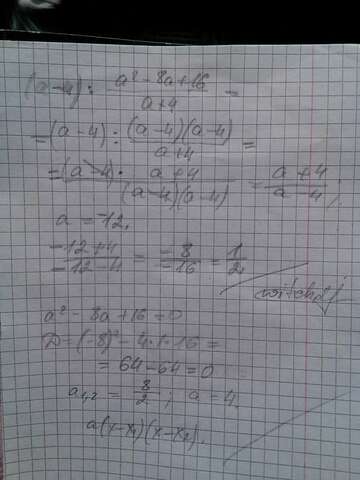 (a-4) : a²-8a+16 / a+4 =
= (a-4) : (a-4)(a-4) / a+4 =
= (a-4) · a+4 / (a-4)(a-4) = a+4 / a-4 ;
a = -12,
-12+4 / -12-4 = -8 / -16 = 1 / 2
a² - 8a + 16 = 0
D = (-8)² - 4·1·16 =
= 64 - 64 = 0
a₁,₂ = 8 / 2 ; a = 4,
a(x-x₁)(x-x₂).